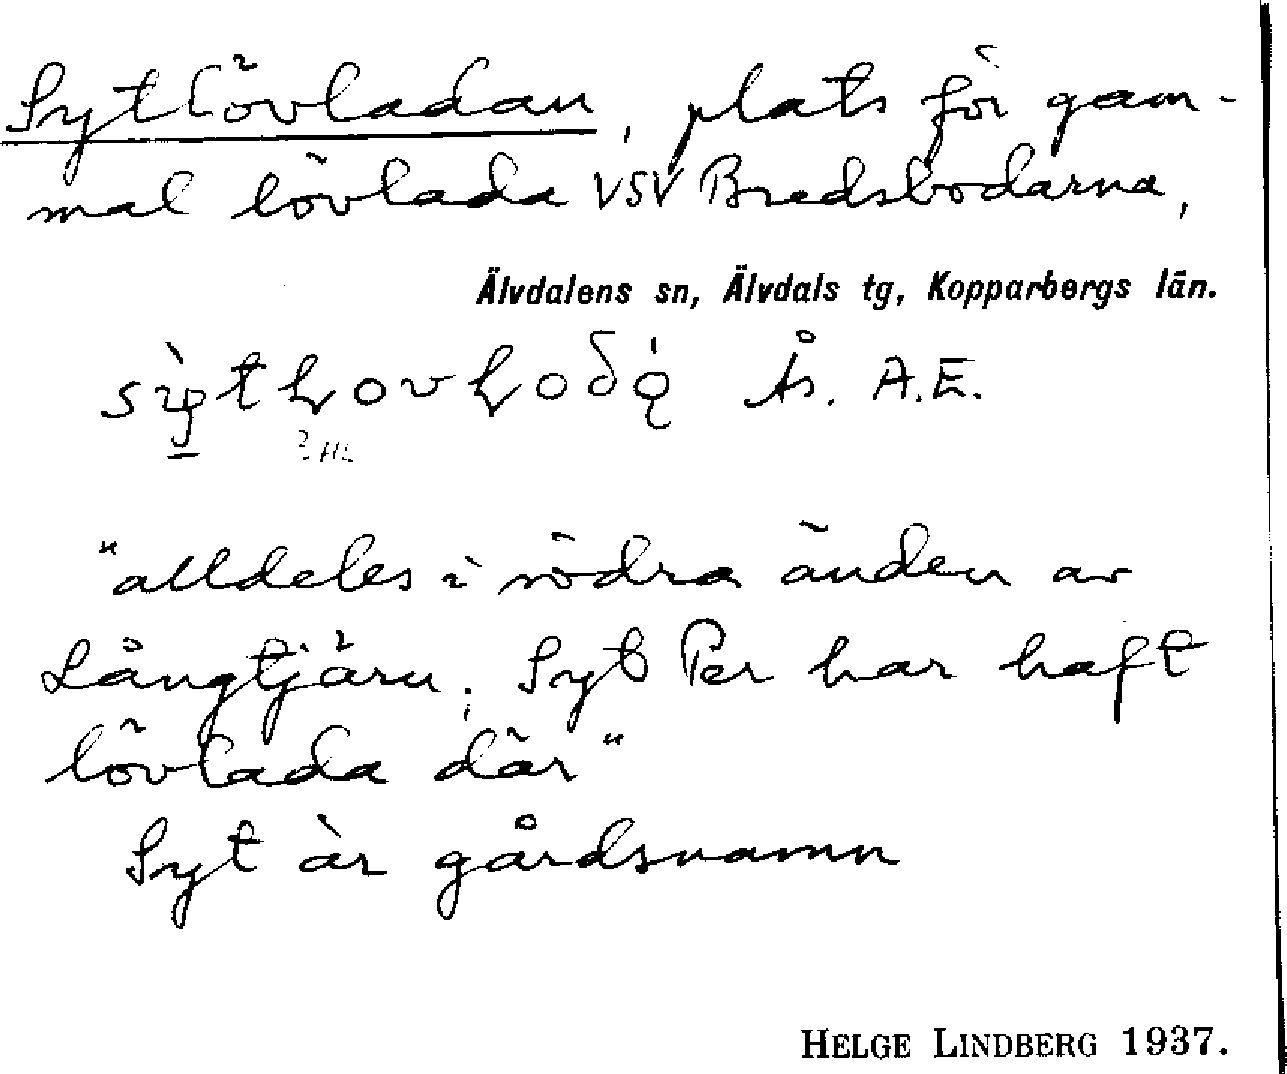 Sytlövladan, plats för gam-
mal lövlada VSV Bredsbodarna,
Älvdalens sn, Älvdals tg, Kopparbergs län.
Ås. A.E.
? HL
"alldeles i södra änden av
Långtjärn; Syt Per har haft
lövlada där"
Syt är gårdsnamn
HELGE LINDBERG 1937.